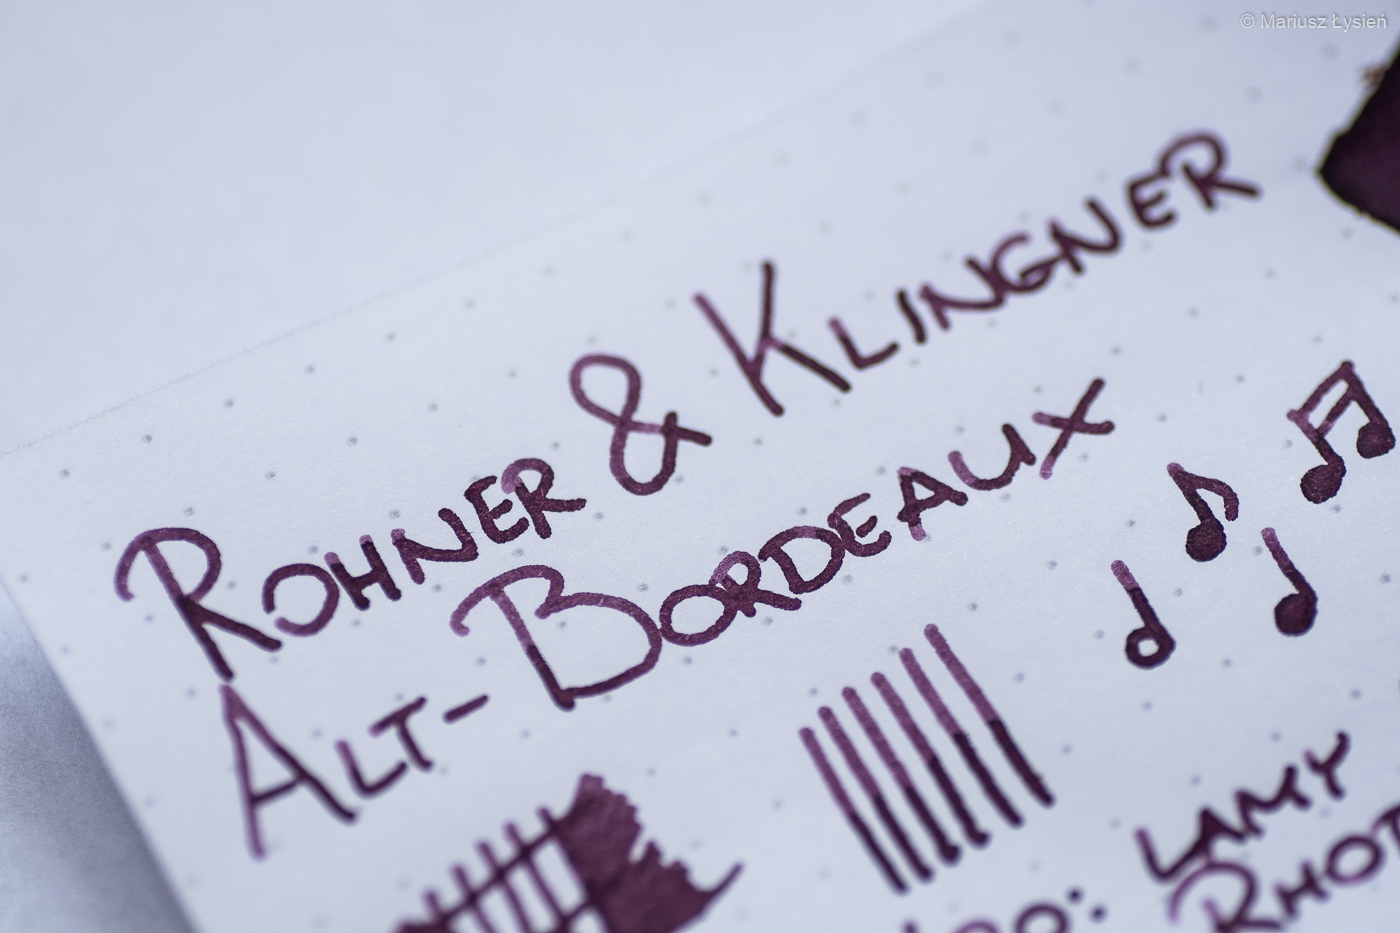 © Mariusz Łysień
ROHNER & KLINGNER
ALT-BORDEAUX
LAMY